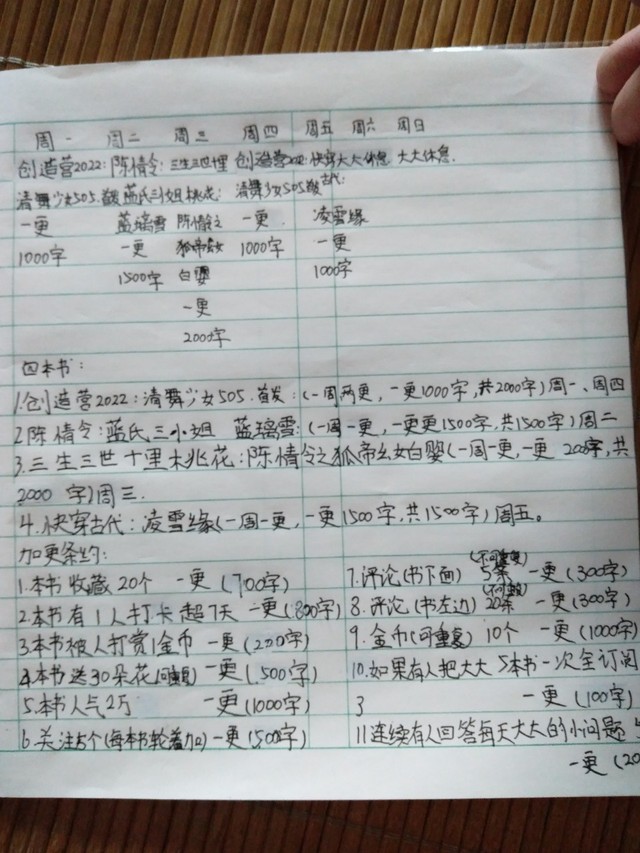 周一 周二 周三 周四 周五 周六 周日
创造营2022: 陈情令: 三生三世十里 创造营2022: 快穿 大大休息 大大休息.
清舞少女505.首发 蓝氏三小姐 桃花: 清舞少女505首发 古代:
一更 蓝璃雪 陈情令之 一更. 凌雪缘
1000字 一更 狐帝幺女 1000字 一更
1500字 白婴 1000字
一更
200字
四本书:
1.创造营2022:清舞少女505.首发:(一周两更,一更1000字,共2000字)周一、周四
2.陈情令:蓝氏三小姐 蓝璃雪:(一周一更,一更更1500字,共1500字)周二
3.三生三世十里桃花:陈情令之狐帝幺女白婴(一周一更,一更 200字,共
2000 字)周三.
4.快穿古代:凌雪缘(一周一更,一更1500字,共1500字)周五。
加更条约:
1.本书收藏20个 一更(700字) 7.评论(书下面)(不可重复)5条 一更(300字)
2.本书有1人打卡超7天 一更(800字) 8.评论(书左边)20条 一更(300字)
3.本书被人打赏1金币 一更(200字) 9.金币(可重复)10个 一更(1000字)
4.本书送30朵花(可重复)一更(1500字) 10.如果有人把大大5本书一次全订阅
5.本书人气2万 一更(1000字) 3 一更(100字)
6.关注5个(每本书轮着加)一更(500字) 11.连续有人回答每天大大的小问题
一更(20